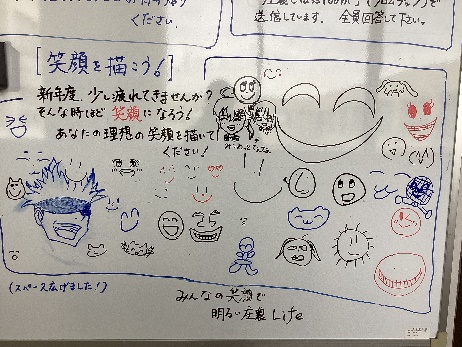 ください。
送信しています。全員回答して下さい。
[笑顔を描こう!]
新年度、少し疲れてきませんか?
そんな時ほど笑顔になろう!
あなたの理想の笑顔を描いて
ください!
(スペース広げました!)
みんなの笑顔で
明るい庄製Life